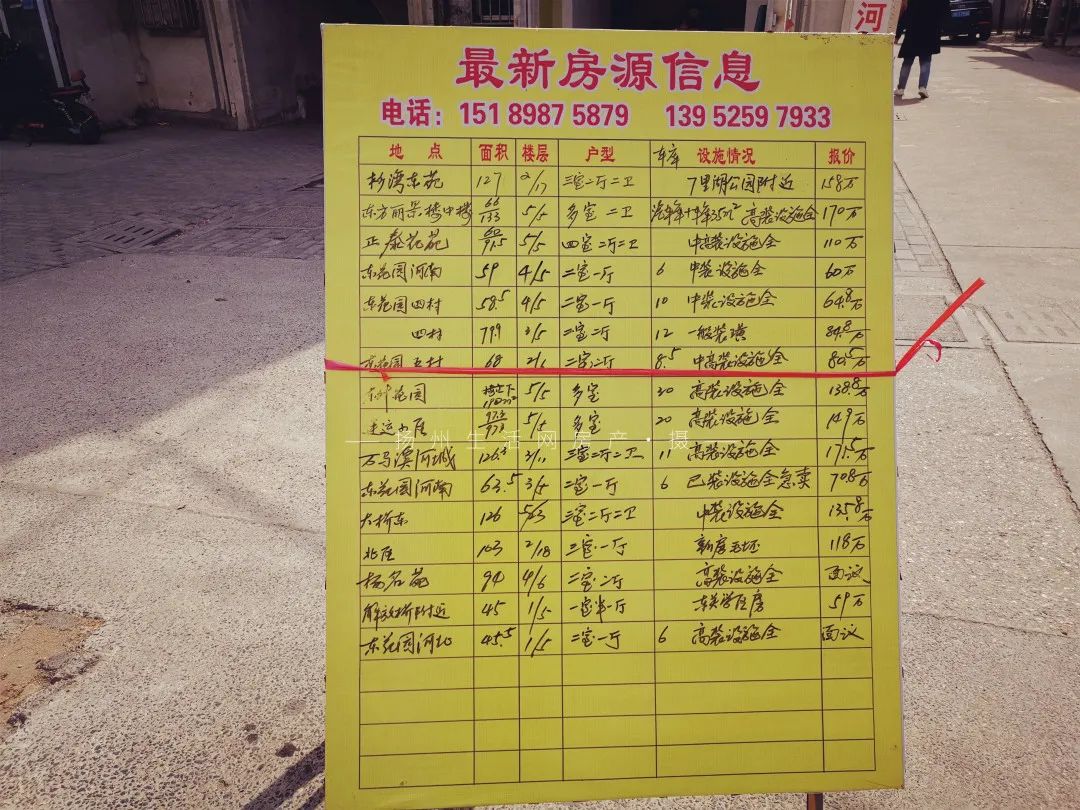 河
最新房源信息
电话：151 8987 5879 139 5259 7933
地 点 面积 楼层 户型 车库 设施情况 报价
杉湾东苑 127 2/17 三室二厅二卫 7里湖公园附近 158万
东方丽景楼中楼 66 133 5/5 多室 二卫 高装设施全 170万
正泰花苑 60 91.5 5/5 四室二厅二卫 中高装设施全 110万
东花园河南 59 4/5 二室一厅 6 中装设施全 60万
东花园四村 58.5 4/5 二室一厅 10 中装设施全 64.8万
四村 79.9 3/5 二室二厅 12 一般装璜 84.8万
东花园五村 68 2/ 二室二厅 8.5 中高装设施全 80.5万
花园 5/5 多室 20 高装设施全 138.8万
5/5 多室 20 高装设施全 149万
——扬州生活网房产·摄
万马溪河城 126.3 3/11 三室二厅二卫 11 高装设施全 171.5万
东花园河南 63.5 3/5 二室一厅 6 已装设施全急卖 70.8万
大桥东 126 三室二厅二卫 中装设施全 135.8万
北 103 2/18 三室一厅 新房毛坯 118万
杨名苑 94 4/6 二室二厅 高装设施全 面议
解放桥附近 45 1/5 一室半一厅 东关学区房 59万
东花园河北 45.5 1/5 二室一厅 6 高装设施全 面议